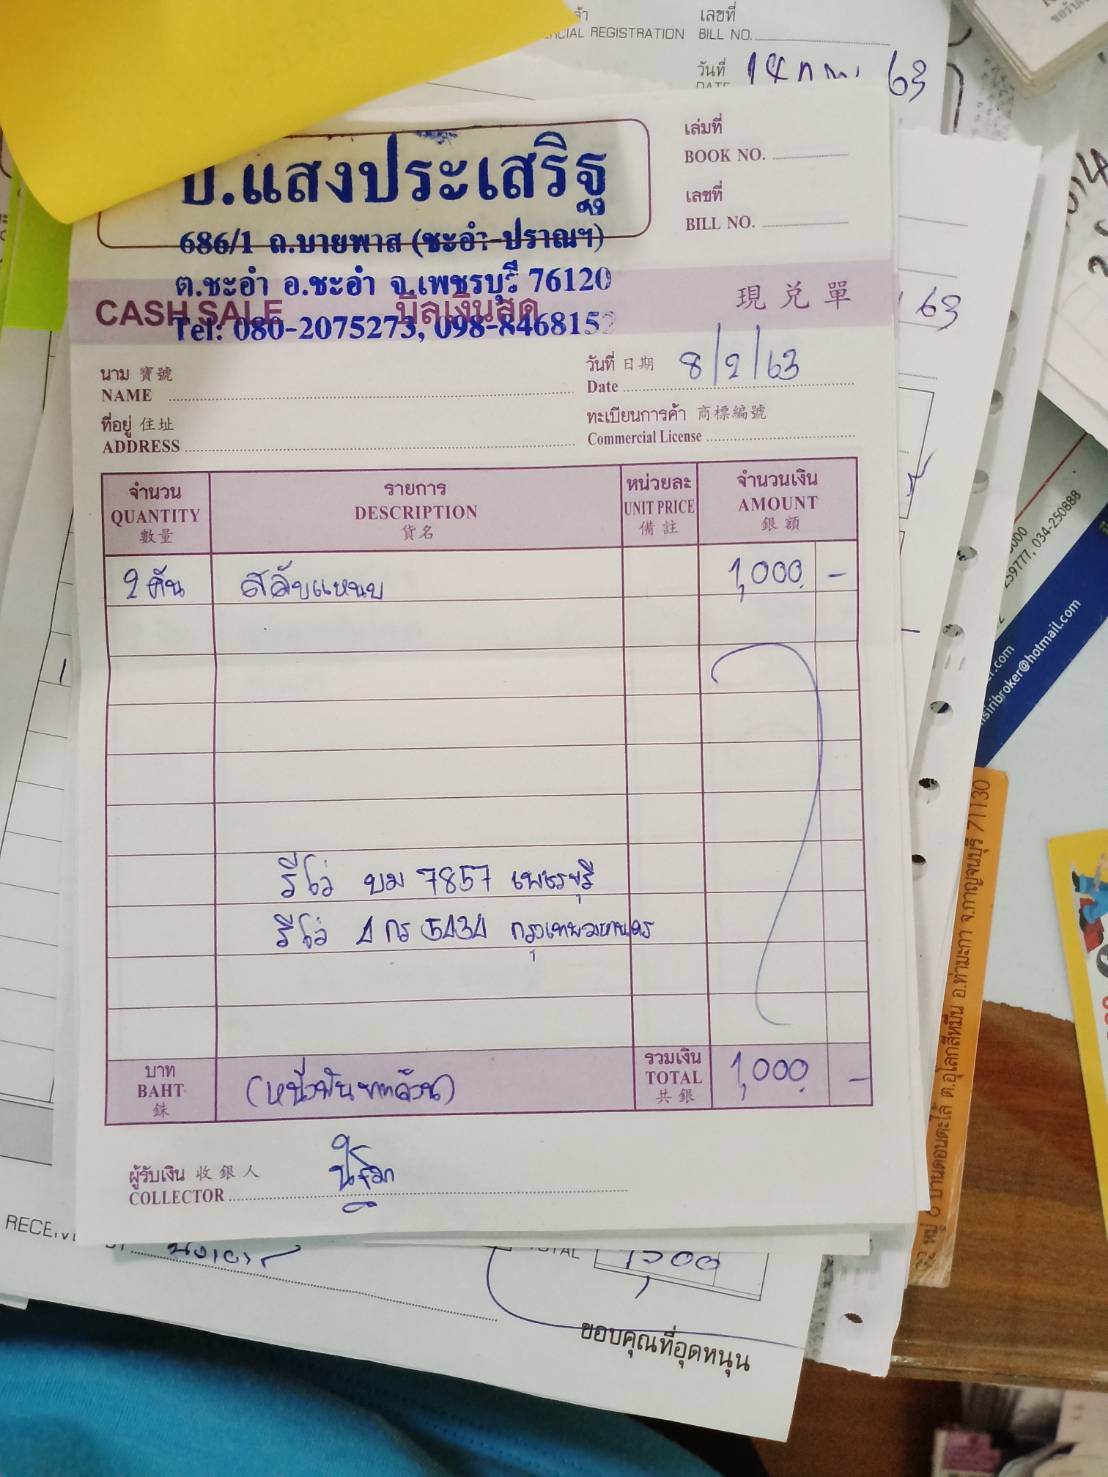 เลขที่
CIAL REGISTRATION BILL NO.
วันที่ 14 กพ. 63
เล่มที่
BOOK NO.
เลขที่
BILL NO.
ป.แสงประเสริฐ
686/1 ถ.บายพาส (ชะอำ-ปราณฯ)
ต.ชะอำ อ.ชะอำ จ.เพชรบุรี 76120
CASH SALE บิลเงินสด 現兌單
Tel: 080-2075273, 098-8468152
63
นาม 寶號
NAME
วันที่ 日期 8/2/63
Date
ที่อยู่ 住址
ADDRESS
ทะเบียนการค้า 商標編號
Commercial License
จำนวน รายการ หน่วยละ จำนวนเงิน
QUANTITY DESCRIPTION UNIT PRICE AMOUNT
數量 貨名 備註 銀額
2 คัน สลับแหนบ 1,000 -
รีโว่ บม 7857 เพชรบุรี
รีโว่ 1 กร 5434 กรุงเทพมหานคร
บาท
BAHT (หนึ่งพันบาทถ้วน)
銖
รวมเงิน
TOTAL 1,000 -
共銀
ผู้รับเงิน 收銀人
COLLECTOR
TOTAL 1500
ขอบคุณที่อุดหนุน
59777, 034-250888
siribroker@hotmail.com
ต.อุโลกสี่หมื่น อ.ท่ามะกา จ.กาญจนบุรี 71130